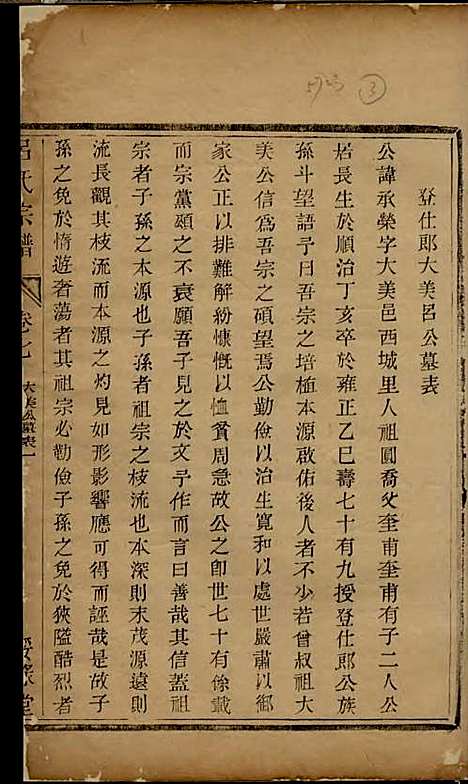 ③
登仕郎大美呂公墓表
公諱承榮字大美邑西城里人祖圓喬父奎甫奎甫有子二人公
居長生於順治丁亥卒於雍正乙巳壽七十有九授登仕郎公族
孫斗望語予曰吾宗之培植本源啟佑後人者不少若曾叔祖大
美公信爲吾宗之碩望焉公勤儉以治生寬和以處世嚴肅以御
家公正以排難解紛慷慨以恤貧周急故公之卽世七十有餘載
而宗黨頌之不衰願吾子見之於文予作而言曰善哉其信蓋祖
宗者子孫之本源也子孫者祖宗之枝流也本深則末茂源遠則
流長觀其枝流而本源之灼見如形影響應可得而誣哉是故子
孫之免於惰遊奢蕩者其祖宗必勤儉子孫之免於狹隘酷烈者
呂氏宗譜
卷之七
大美公墓表
一
堂